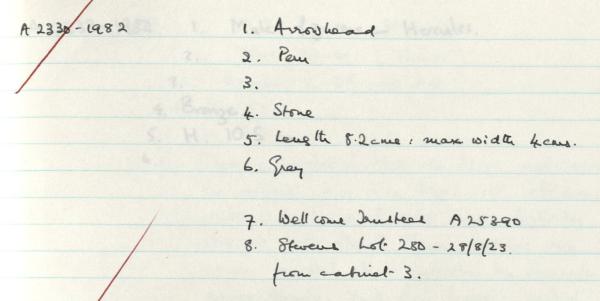 A 2330-1982 1. Arrowhead
2. Peru
3.
4. Stone
5. Length 8.2cms: max width 4cms.
6. Grey
7. Wellcome A25390
8. Stevens Lot 280 - 28/8/23.
from cabinet 3.